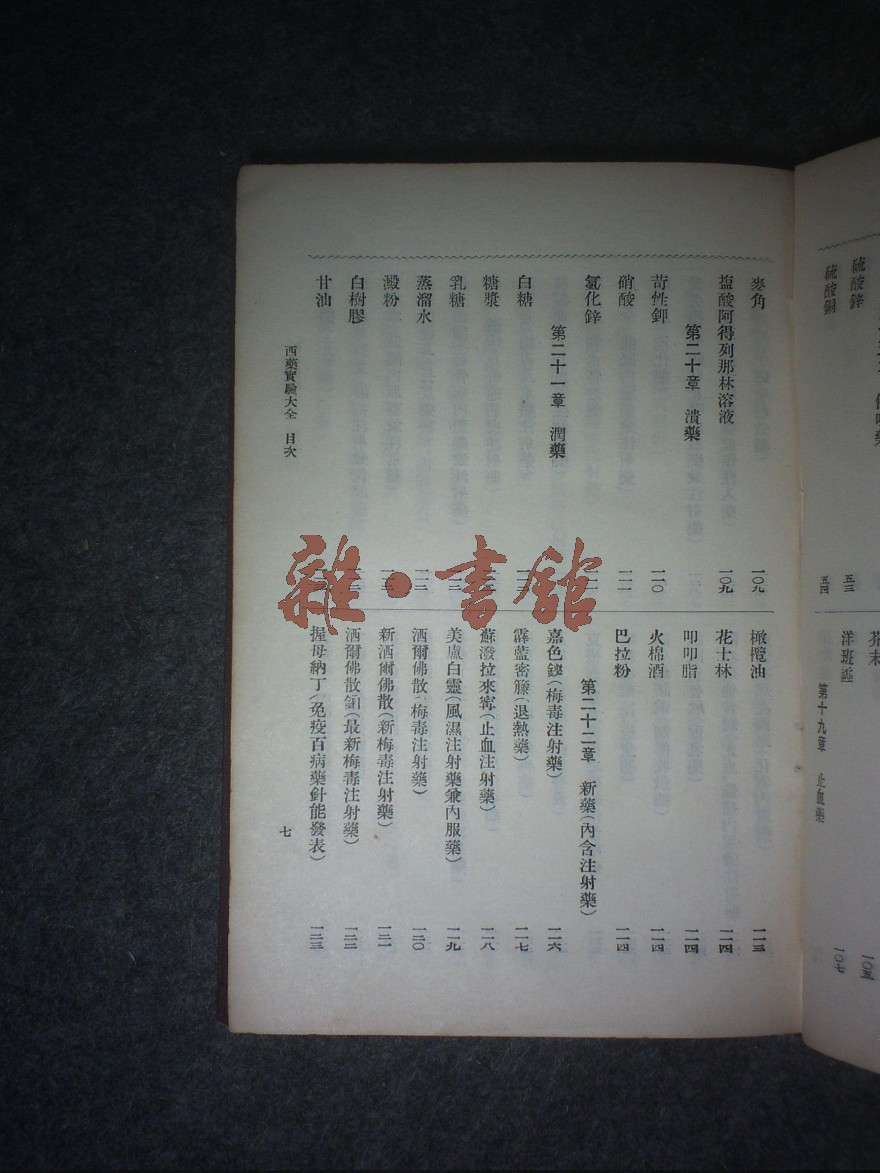 硫酸鋅 五三
硫酸銅 五四
芥末 一〇五
洋班蝥 一〇七
第十九章 止血藥
麥角 一〇九
塩酸阿得列那林溶液 一〇九
第二十章 潰藥
苛性鉀 一一〇
硝酸 一一一
氯化鋅
第二十一章 潤藥
白糖
糖漿
乳糖
蒸溜水
澱粉
白樹膠
甘油
橄欖油 一一三
花士林 一一四
叩叩脂 一一四
火棉酒 一一四
巴拉粉 一一四
第二十二章 新藥(內含注射藥)
嘉色鏐(梅毒注射藥) 一一六
霹藍密籐(退熱藥) 一一七
蘇潑拉來寗(止血注射藥) 一一八
美盧白靈(風濕注射藥兼內服藥) 一一九
洒爾佛散(梅毒注射藥) 一二〇
新洒爾佛散(新梅毒注射藥) 一二一
洒爾佛散鈤(最新梅毒注射藥) 一二二
握母納丁(免疫百病藥針能發表) 一二三
西藥實驗大全 目次
七
雜·書館